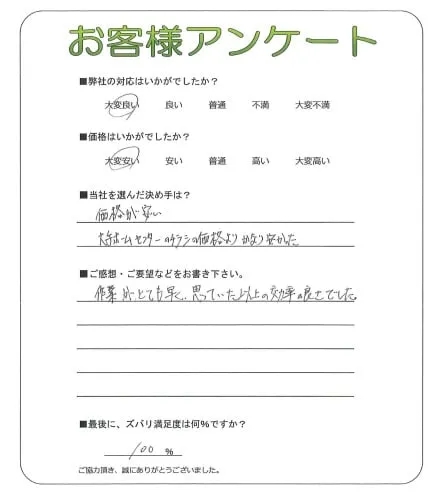 お客様アンケート
■弊社の対応はいかがでしたか?
大変良い 良い 普通 不満 大変不満
■価格はいかがでしたか?
大変安い 安い 普通 高い 大変高い
■当社を選んだ決め手は?
価格が安い
大手ホームセンターのチラシの価格よりかなり安かった
■ご感想・ご要望などをお書き下さい。
作業がとても早く、思っていた以上の効率の良さでした。
■最後に、ズバリ満足度は何%ですか?
100 %
ご協力頂き、誠にありがとうございました。